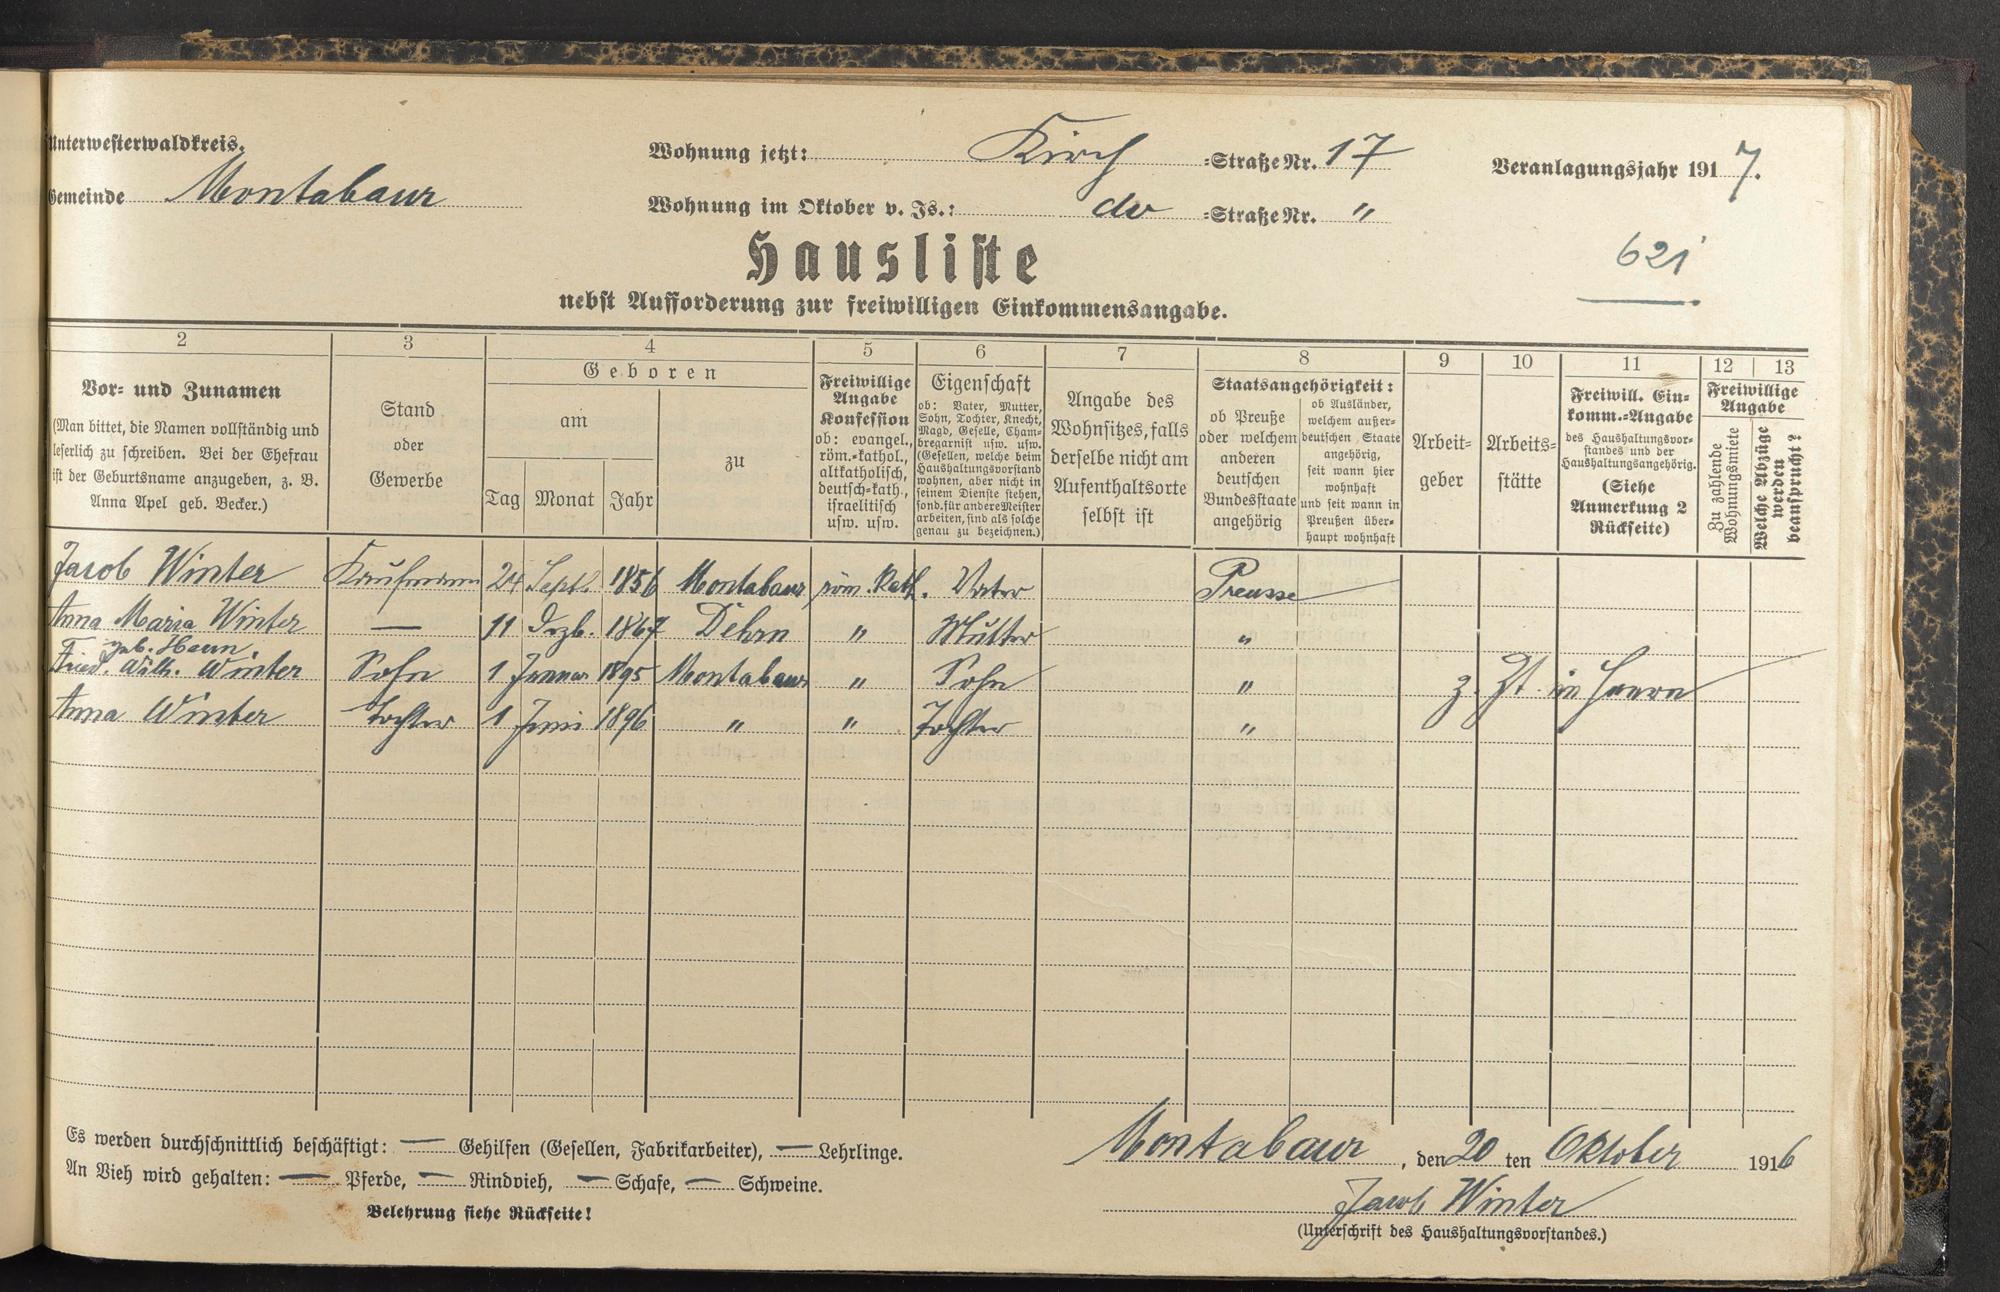 Unterwesterwaldkreis.
Gemeinde Montabaur
Wohnung jetzt: Kirch =Straße Nr. 17
Wohnung im Oktober v. Js.: do =Straße Nr. "
Veranlagungsjahr 1917.
621
Hausliste
nebst Aufforderung zur freiwilligen Einkommensangabe.
2 3 4 5 6 7 8 9 10 11 12 13
Vor- und Zunamen
(Man bittet, die Namen vollständig und
leserlich zu schreiben. Bei der Ehefrau
ist der Geburtsname anzugeben, z. B.
Anna Apel geb. Becker.)
Stand
oder
Gewerbe
Geboren
am
Tag Monat Jahr
zu
Freiwillige
Angabe
Konfession
ob: evangel.,
röm.-kathol.,
altkatholisch,
deutsch-kath.,
israelitisch
usw. usw.
Eigenschaft
ob: Vater, Mutter,
Sohn, Tochter, Knecht,
Magd, Geselle, Cham-
bregarnist usw. usw.
(Gesellen, welche beim
Haushaltungsvorstand
wohnen, aber nicht in
seinem Dienste stehen,
sond. für andere Meister
arbeiten, sind als solche
genau zu bezeichnen.)
Angabe des
Wohnsitzes, falls
derselbe nicht am
Aufenthaltsorte
selbst ist
Staatsangehörigkeit:
ob Preuße
oder welchem
anderen
deutschen
Bundesstaate
angehörig
ob Ausländer,
welchem außer-
deutschen Staate
angehörig,
seit wann hier
wohnhaft
und seit wann in
Preußen über-
haupt wohnhaft
Arbeit-
geber
Arbeits-
stätte
Freiwill. Ein-
komm.-Angabe
des Haushaltungsvor-
standes und der
Haushaltungsangehörig.
(Siehe
Anmerkung 2
Rückseite)
Freiwillige
Angabe
Zu zahlende
Wohnungsmiete
Welche Abzüge
werden
beansprucht?
Jacob Winter Kaufmann 24 Sept. 1856 Montabaur röm. Kath. Vater Preusse
Anna Maria Winter — 11 Dezb. 1867 Dehrn " Mutter "
geb. Heun
Fried. Wilh. Winter Sohn 1 Januar 1895 Montabaur " Sohn " z. Zt. im Heere
Anna Winter Tochter 1 Juni 1896 " " Tochter "
Es werden durchschnittlich beschäftigt: — Gehilfen (Gesellen, Fabrikarbeiter), — Lehrlinge.
An Vieh wird gehalten: — Pferde, — Rindvieh, — Schafe, — Schweine.
Belehrung siehe Rückseite!
Montabaur, den 20 ten Oktober 1916
Jacob Winter
(Unterschrift des Haushaltungsvorstandes.)